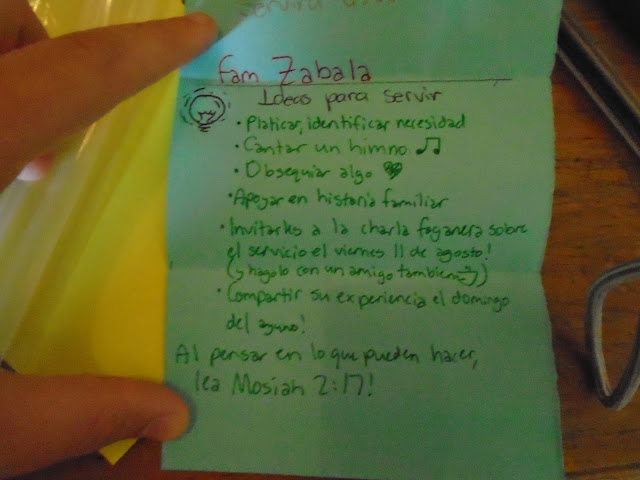 servira a
Fam Zabala
Ideas para servir
• Platicar, identificar necesidad
• Cantar un himno ♫
• Obsequiar algo ♥
• Apoyar en historia familiar
• Invitarles a la charla foganera sobre
el servicio el viernes 11 de agosto!
(y hagalo con un amigo tambien =))
• Compartir su experiencia el domingo
del ayuno!
Al pensar en lo que pueden hacer,
lea Mosiah 2:17!